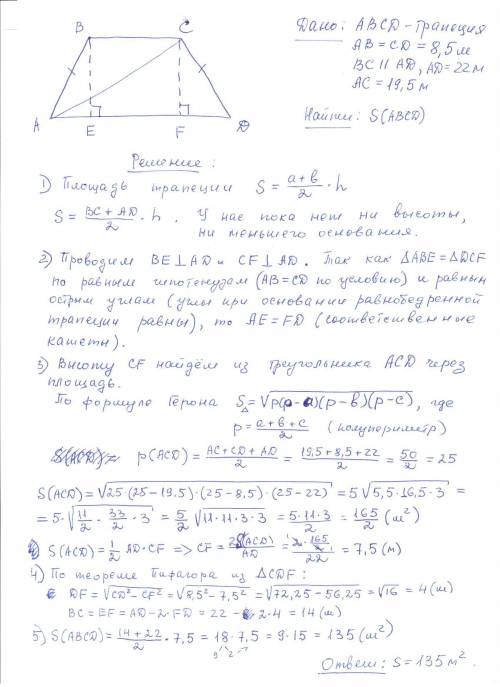 B C
A E F D
Дано: ABCD - трапеция
AB = CD = 8,5 м
BC || AD, AD = 22 м
AC = 19,5 м
Найти: S(ABCD)
Решение:
1) Площадь трапеции S = (a+b)/2 · h
S = (BC + AD)/2 · h. У нас пока нет ни высоты,
ни меньшего основания.
2) Проводим BE⊥AD и CF⊥AD. Так как ΔABE = ΔDCF
по равным гипотенузам (AB=CD по условию) и равным
острым углам (углы при основании равнобедренной
трапеции равны), то AE = FD (соответственные
катеты).
3) Высоту CF найдём из треугольника ACD через
площадь.
По формуле Герона S△ = √(p(p-a)(p-b)(p-c)), где
p = (a+b+c)/2 (полупериметр)
p(ACD) = (AC+CD+AD)/2 = (19,5+8,5+22)/2 = 50/2 = 25
S(ACD) = √(25·(25-19,5)·(25-8,5)·(25-22)) = 5√(5,5·16,5·3) =
= 5·√(11/2 · 33/2 · 3) = 5/2 √(11·11·3·3) = 5·11·3/2 = 165/2 (м²)
S(ACD) = 1/2 AD·CF => CF = 2S(ACD)/AD = 2·165/2/22 = 7,5 (м)
4) По теореме Пифагора из ΔCDF:
DF = √(CD²-CF²) = √(8,5²-7,5²) = √(72,25-56,25) = √16 = 4 (м)
BC = EF = AD-2·FD = 22-2·4 = 14 (м)
5) S(ABCD) = (14+22)/2 · 7,5 = 18·7,5 = 9·15 = 135 (м²)
9 2
Ответ: S = 135 м².